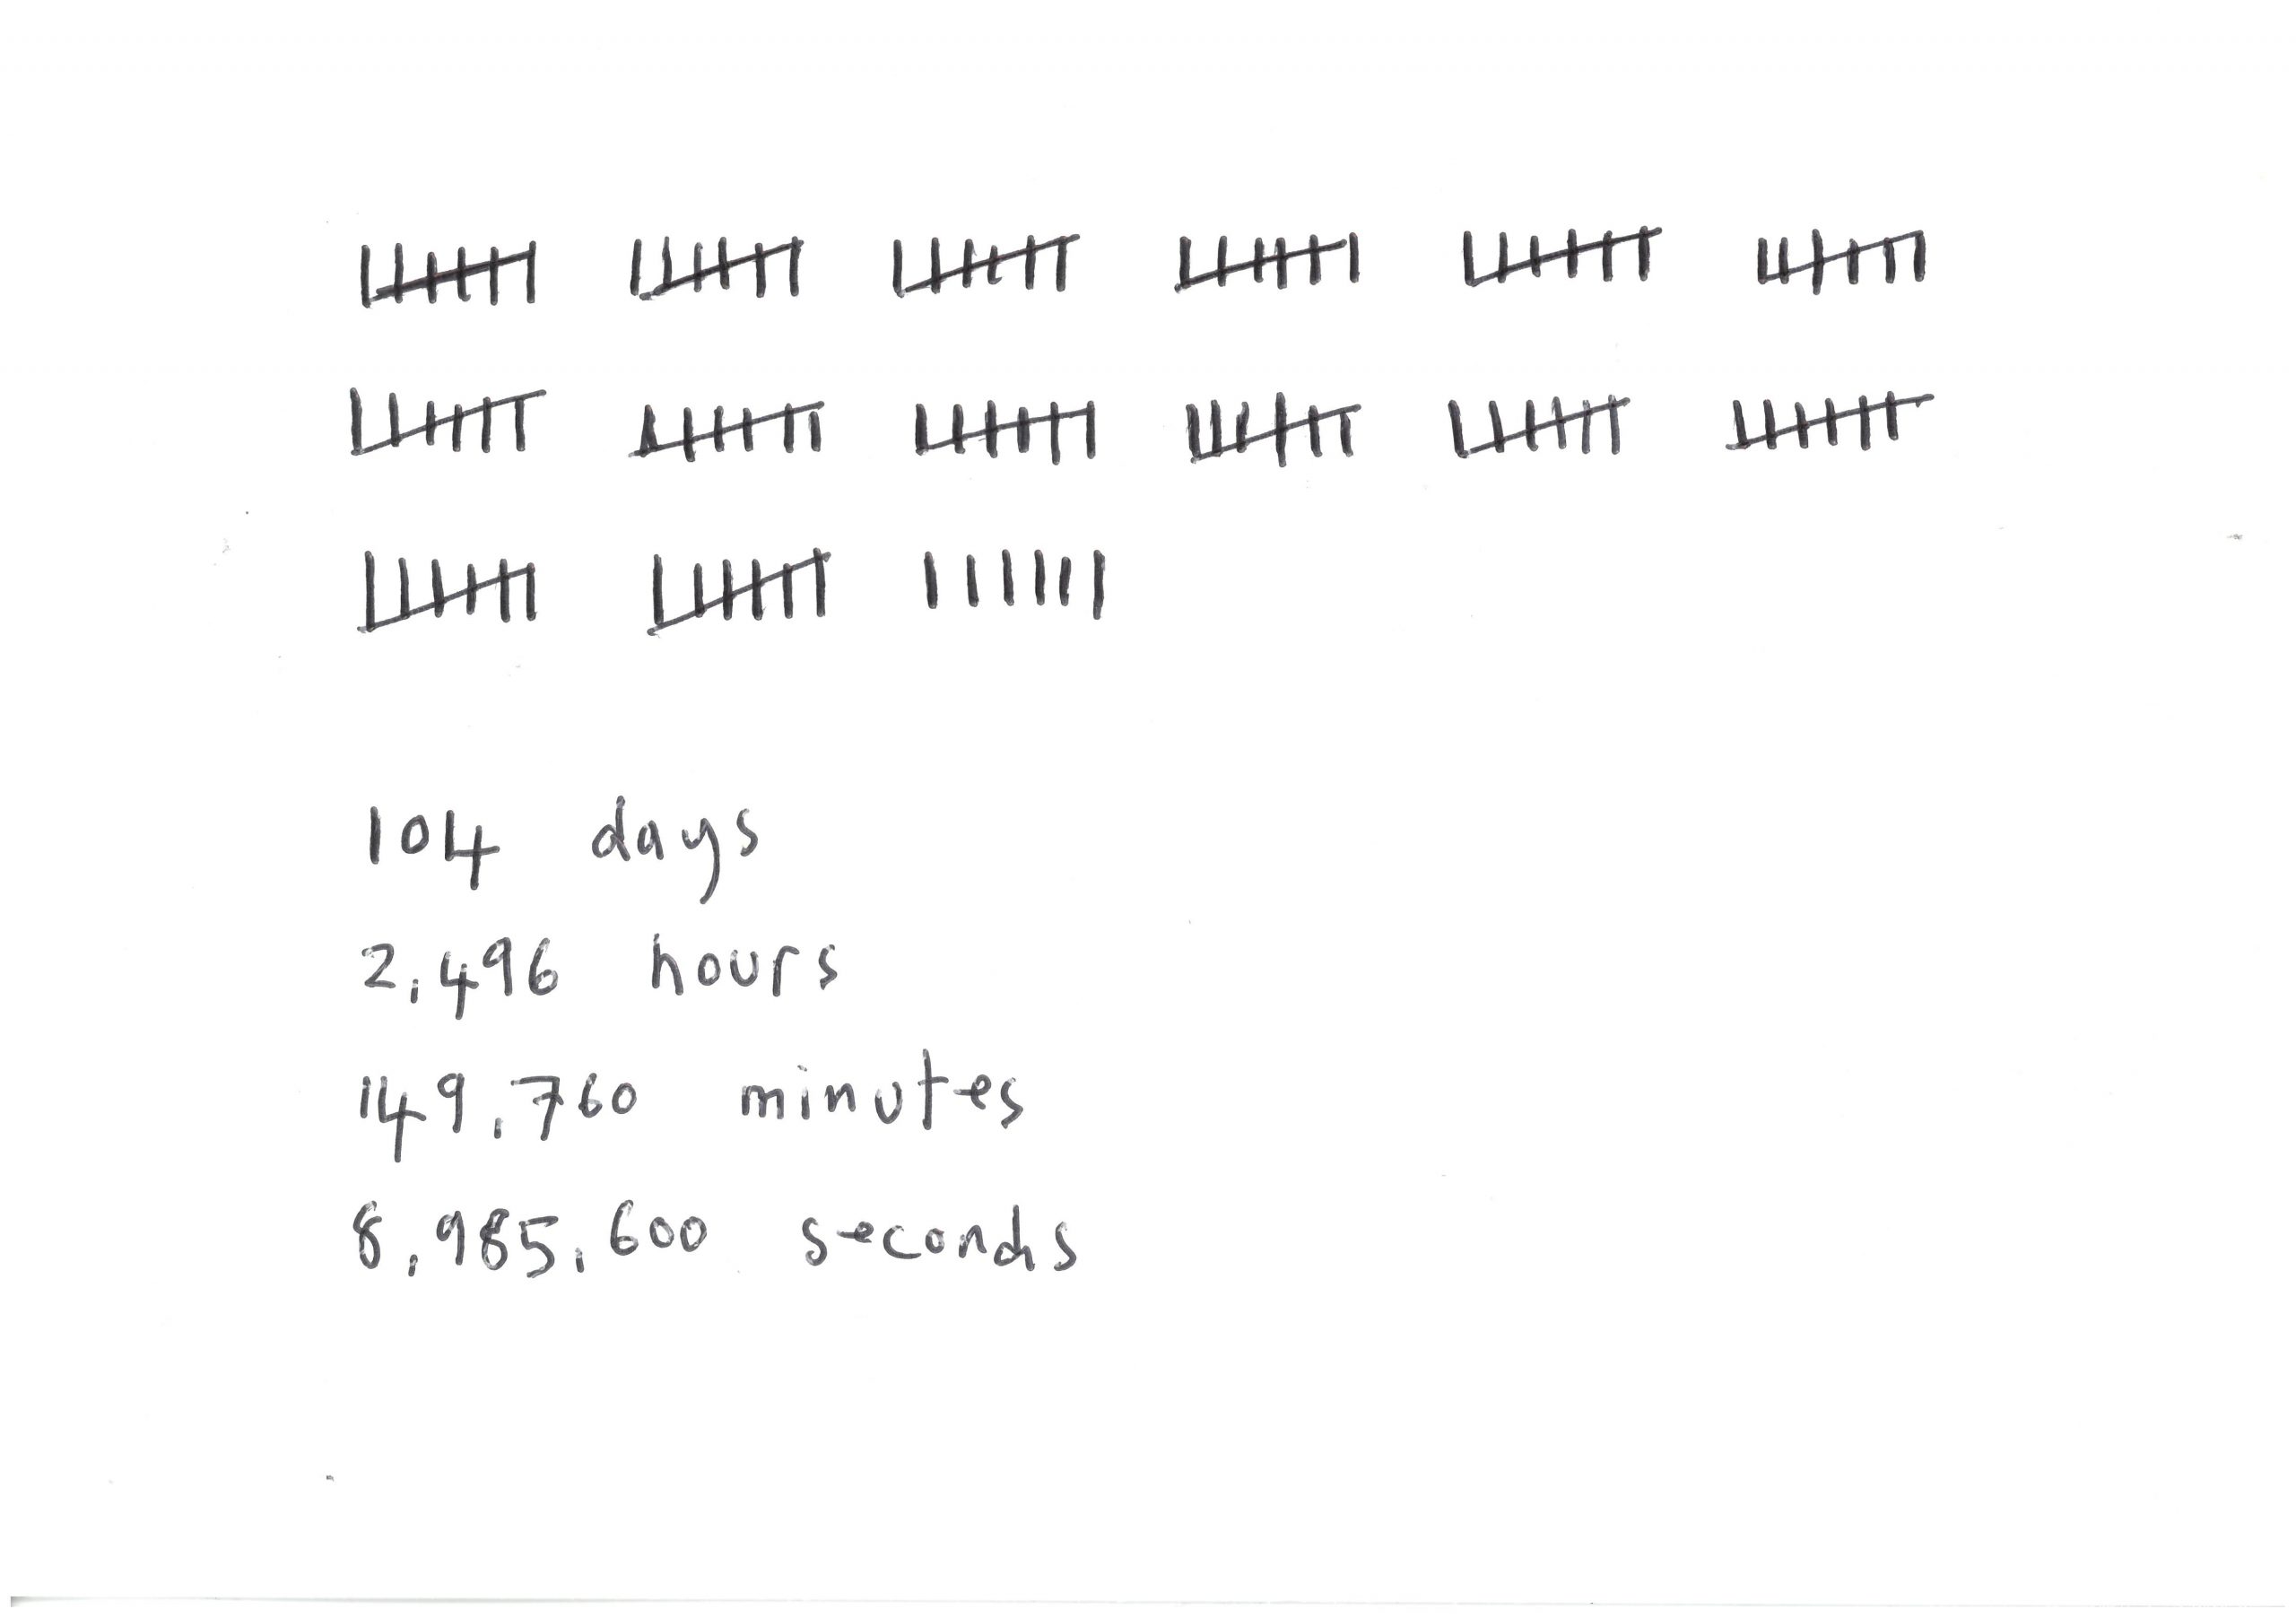 104 days
2,496 hours
149,760 minutes
8,985,600 seconds